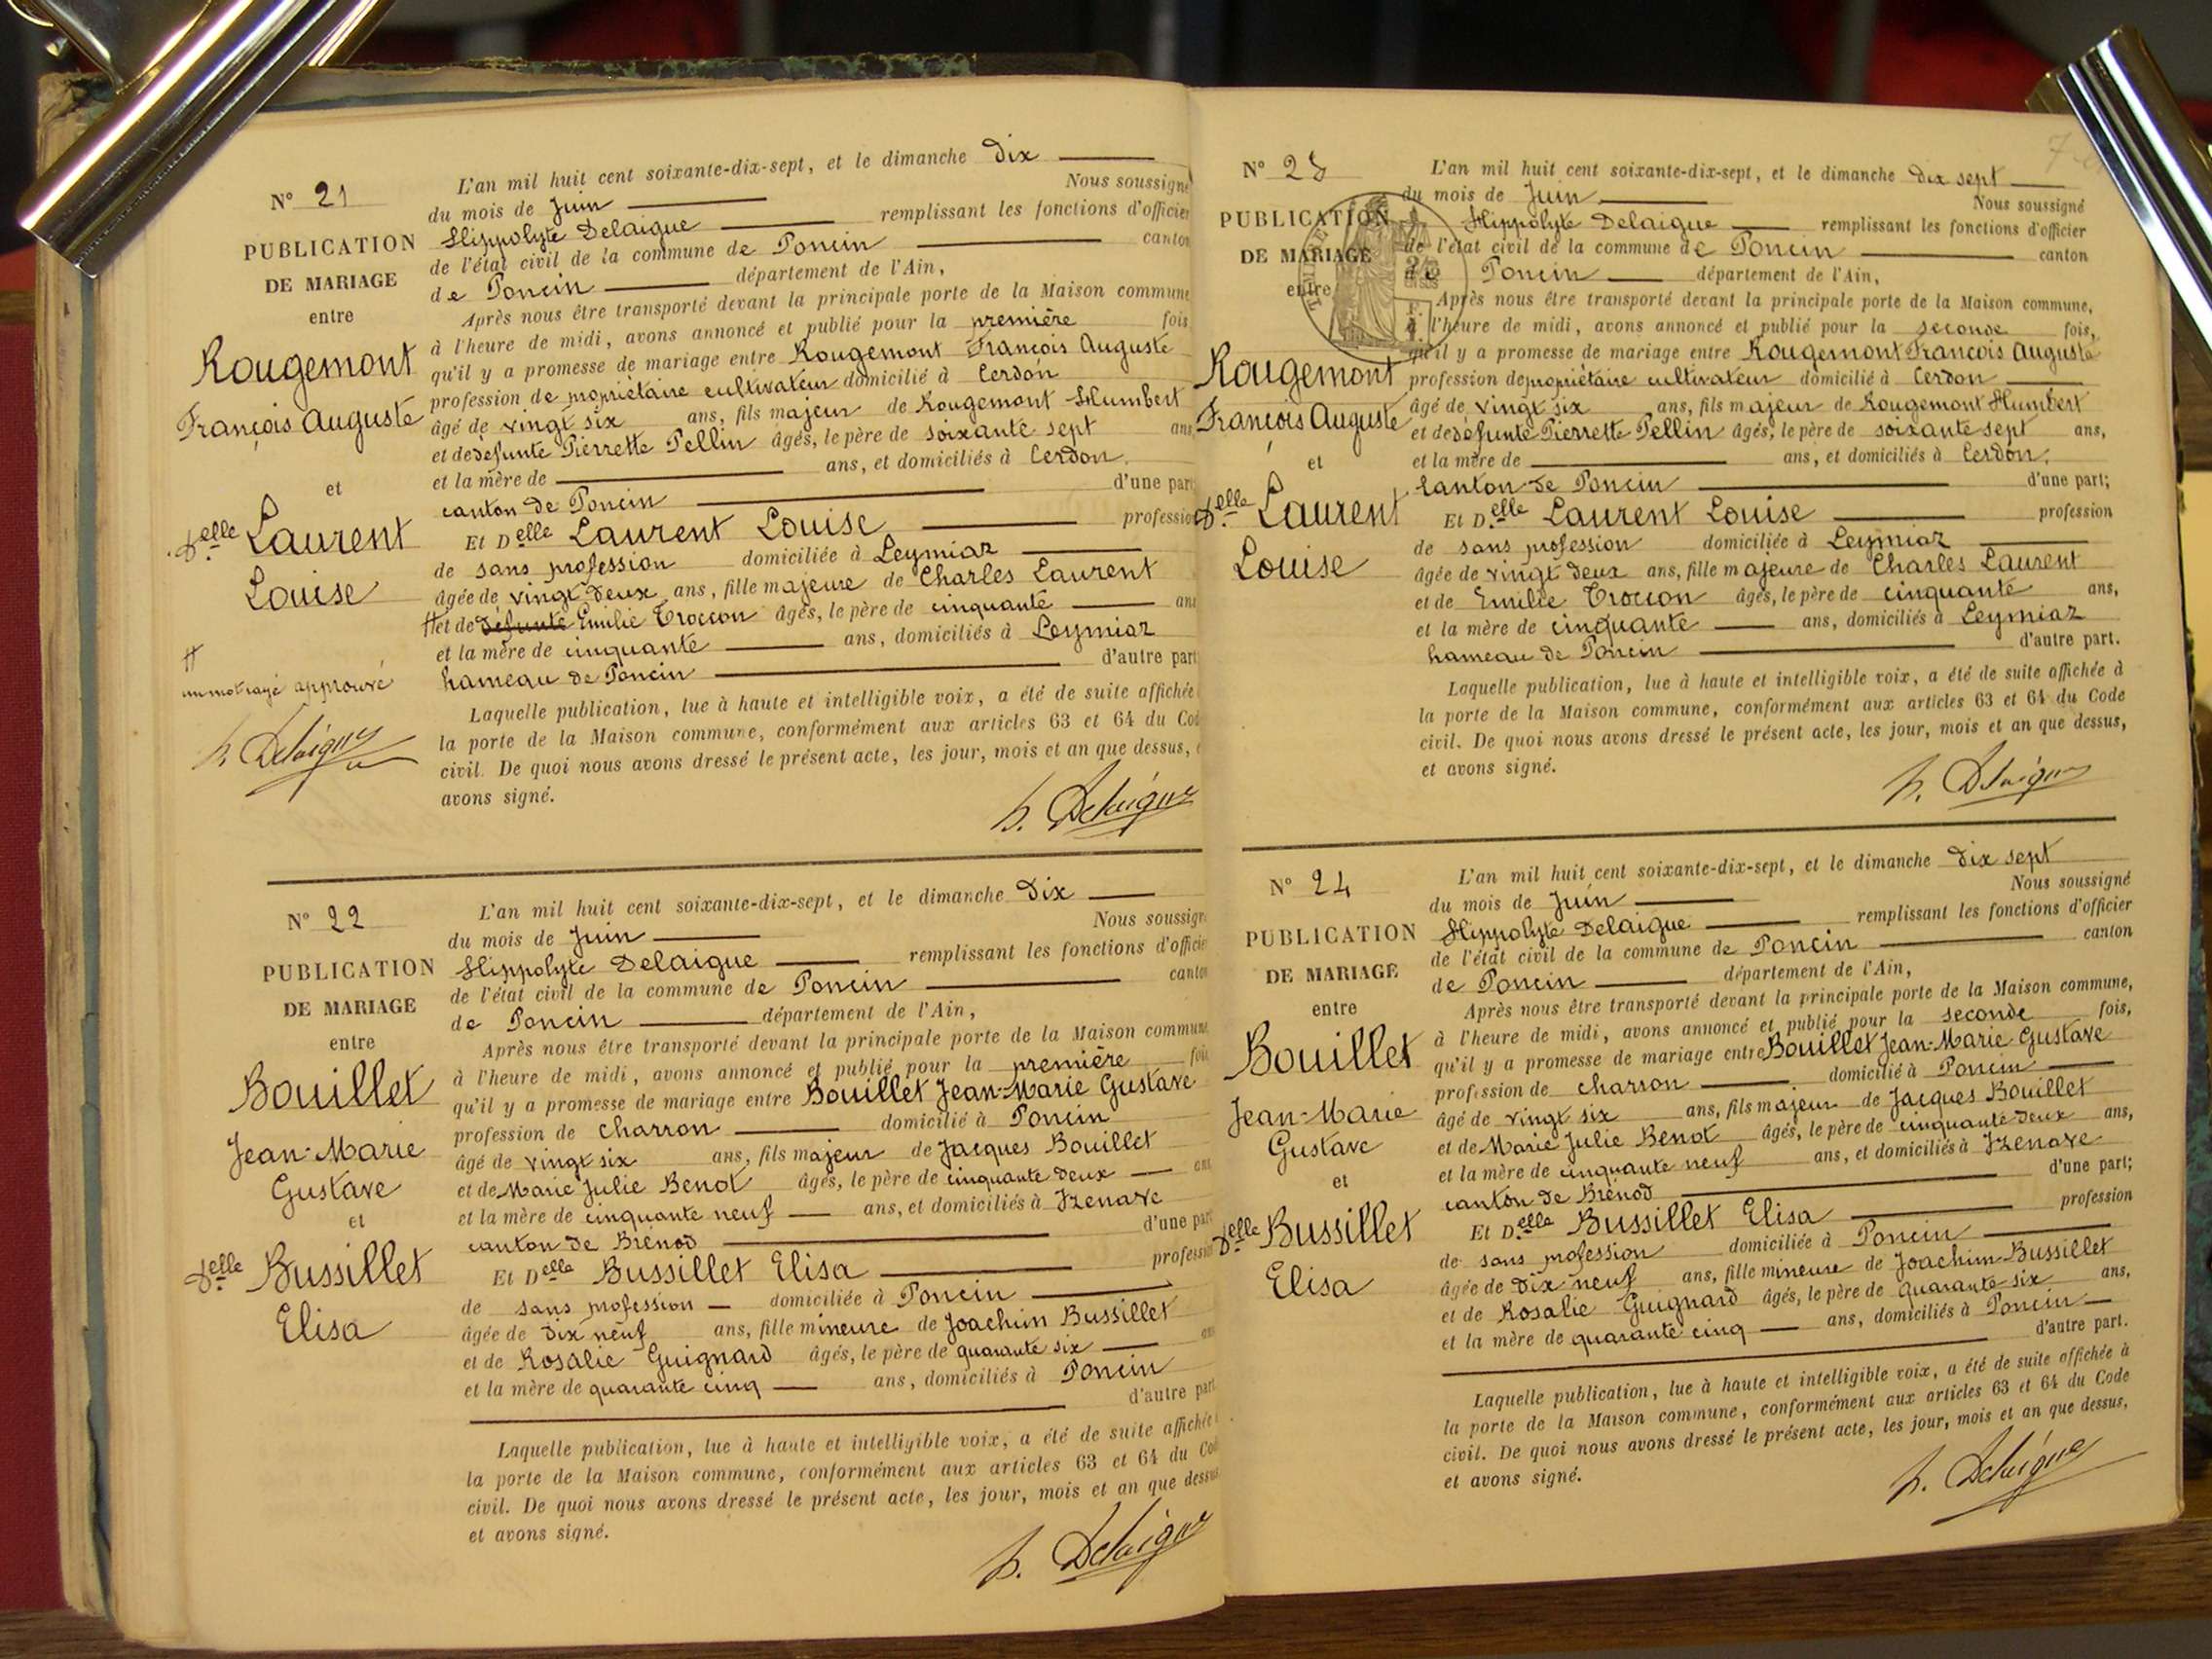 N° 21
PUBLICATION
DE MARIAGE
entre
Rougemont
François Auguste
et
Delle Laurent
Louise
#
un mot rayé approuvé
h. Delaigue
L'an mil huit cent soixante-dix-sept, et le dimanche dix
du mois de Juin Nous soussigné
Hippolyte Delaigue remplissant les fonctions d'officier
de l'état civil de la commune de Poncin canton
de Poncin département de l'Ain,
Après nous être transporté devant la principale porte de la Maison commune
à l'heure de midi, avons annoncé et publié pour la première fois
qu'il y a promesse de mariage entre Rougemont François Auguste
profession de propriétaire cultivateur domicilié à Cerdon
âgé de vingt six ans, fils majeur de Rougemont Humbert
et de défunte Pierrette Pellin âgés, le père de soixante sept ans
et la mère de ans, et domiciliés à Cerdon.
canton de Poncin d'une part
Et Delle Laurent Louise profession
de sans profession domiciliée à Leymiaz
âgée de vingt deux ans, fille majeure de Charles Laurent
# et de défunte Emilie Troccon âgés, le père de cinquante ans
et la mère de cinquante ans, domiciliés à Leymiaz
hameau de Poncin d'autre part
Laquelle publication, lue à haute et intelligible voix, a été de suite affichée
la porte de la Maison commune, conformément aux articles 63 et 64 du Cod
civil. De quoi nous avons dressé le présent acte, les jour, mois et an que dessus, e
avons signé.
h. Delaigue
N° 22
PUBLICATION
DE MARIAGE
entre
Bouillet
Jean-Marie
Gustave
et
Delle Bussillet
Elisa
L'an mil huit cent soixante-dix-sept, et le dimanche Dix
du mois de Juin Nous soussign
Hippolyte Delaigue remplissant les fonctions d'officie
de l'état civil de la commune de Poncin canton
de Poncin département de l'Ain,
Après nous être transporté devant la principale porte de la Maison commune
à l'heure de midi, avons annoncé et publié pour la première foi
qu'il y a promesse de mariage entre Bouillet Jean-Marie Gustave
profession de charron domicilié à Poncin
âgé de vingt six ans, fils majeur de Jacques Bouillet
et de Marie Julie Benot âgés, le père de cinquante deux ans
et la mère de cinquante neuf ans, et domiciliés à Izenave
canton de Brénod d'une part
Et Delle Bussillet Elisa profession
de sans profession domiciliée à Poncin
âgée de dix neuf ans, fille mineure de Joachim Bussillet
et de Rosalie Guignard âgés, le père de quarante six an
et la mère de quarante cinq ans, domiciliés à Poncin
d'autre part
Laquelle publication, lue à haute et intelligible voix, a été de suite affichée
la porte de la Maison commune, conformément aux articles 63 et 64 du Cod
civil. De quoi nous avons dressé le présent acte, les jour, mois et an que dessus
et avons signé.
h. Delaigue
N° 23
PUBLICATION
DE MARIAGE
entre
Rougemont
François Auguste
et
Delle Laurent
Louise
L'an mil huit cent soixante-dix-sept, et le dimanche dix sept
du mois de Juin Nous soussigné
Hippolyte Delaigue remplissant les fonctions d'officier
de l'état civil de la commune de Poncin canton
de Poncin département de l'Ain,
Après nous être transporté devant la principale porte de la Maison commune,
à l'heure de midi, avons annoncé et publié pour la seconde fois,
qu'il y a promesse de mariage entre Rougemont François Auguste
profession de propriétaire cultivateur domicilié à Cerdon
âgé de vingt six ans, fils majeur de Rougemont Humbert
et de défunte Pierrette Pellin âgés, le père de soixante sept ans,
et la mère de ans, et domiciliés à Cerdon.
canton de Poncin d'une part;
Et Delle Laurent Louise profession
de sans profession domiciliée à Leymiaz
âgée de vingt deux ans, fille majeure de Charles Laurent
et de Emilie Troccon âgés, le père de cinquante ans,
et la mère de cinquante ans, domiciliés à Leymiaz
hameau de Poncin d'autre part.
Laquelle publication, lue à haute et intelligible voix, a été de suite affichée à
la porte de la Maison commune, conformément aux articles 63 et 64 du Code
civil. De quoi nous avons dressé le présent acte, les jour, mois et an que dessus,
et avons signé.
h. Delaigue
N° 24
PUBLICATION
DE MARIAGE
entre
Bouillet
Jean-Marie
Gustave
et
Delle Bussillet
Elisa
L'an mil huit cent soixante-dix-sept, et le dimanche Dix sept
du mois de Juin Nous soussigné
Hippolyte Delaigue remplissant les fonctions d'officier
de l'état civil de la commune de Poncin canton
de Poncin département de l'Ain,
Après nous être transporté devant la principale porte de la Maison commune,
à l'heure de midi, avons annoncé et publié pour la seconde fois,
qu'il y a promesse de mariage entre Bouillet Jean-Marie Gustave
profession de charron domicilié à Poncin
âgé de vingt six ans, fils majeur de Jacques Bouillet
et de Marie Julie Benot âgés, le père de cinquante deux ans,
et la mère de cinquante neuf ans, et domiciliés à Izenave
canton de Brénod d'une part;
Et Delle Bussillet Elisa profession
de sans profession domiciliée à Poncin
âgée de dix neuf ans, fille mineure de Joachim Bussillet
et de Rosalie Guignard âgés, le père de quarante six ans,
et la mère de quarante cinq ans, domiciliés à Poncin
d'autre part.
Laquelle publication, lue à haute et intelligible voix, a été de suite affichée à
la porte de la Maison commune, conformément aux articles 63 et 64 du Code
civil. De quoi nous avons dressé le présent acte, les jour, mois et an que dessus,
et avons signé.
h. Delaigue